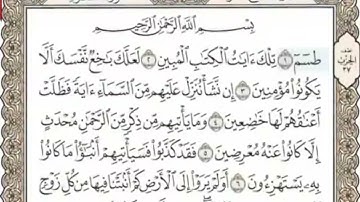 بِسْمِ ٱللَّهِ ٱلرَّحْمَٰنِ ٱلرَّحِيمِ
طسٓمٓ ١ تِلْكَ ءَايَٰتُ ٱلْكِتَٰبِ ٱلْمُبِينِ ٢ لَعَلَّكَ بَٰخِعٌ نَّفْسَكَ أَلَّا
يَكُونُوا۟ مُؤْمِنِينَ ٣ إِن نَّشَأْ نُنَزِّلْ عَلَيْهِم مِّنَ ٱلسَّمَآءِ ءَايَةً فَظَلَّتْ
أَعْنَٰقُهُمْ لَهَا خَٰضِعِينَ ٤ وَمَا يَأْتِيهِم مِّن ذِكْرٍ مِّنَ ٱلرَّحْمَٰنِ مُحْدَثٍ
إِلَّا كَانُوا۟ عَنْهُ مُعْرِضِينَ ٥ فَقَدْ كَذَّبُوا۟ فَسَيَأْتِيهِمْ أَنۢبَٰٓؤُا۟ مَا كَانُوا۟
بِهِۦ يَسْتَهْزِءُونَ ٦ أَوَلَمْ يَرَوْا۟ إِلَى ٱلْأَرْضِ كَمْ أَنۢبَتْنَا فِيهَا مِن كُلِّ زَوْجٍ